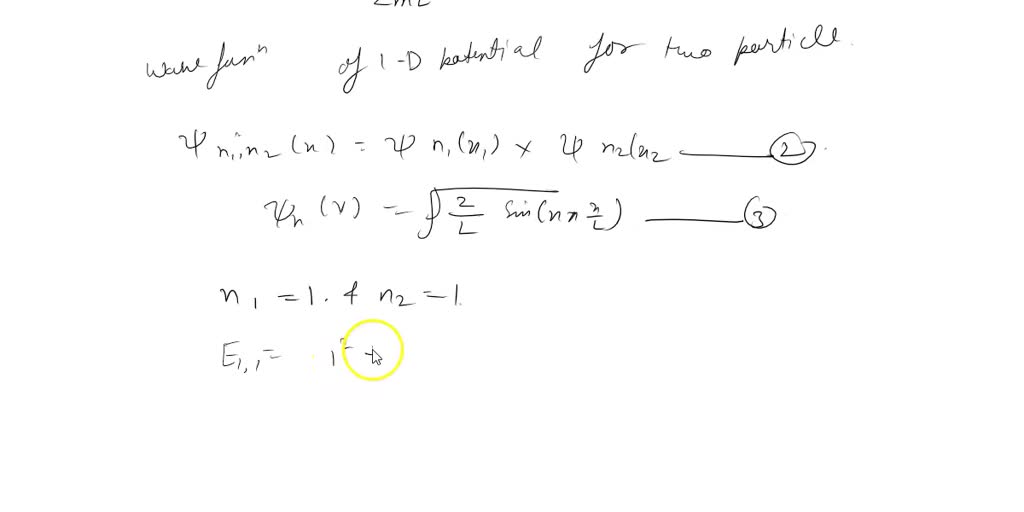 2mL
wave funⁿ of 1-D potential for two particle.
ψ n₁,n₂ (x) = ψ n₁(x₁) × ψ n₂(x₂ ——— ②.
ψₙ (x) = √2/L sin(nπ x/L) ——— ③
n₁ = 1. & n₂ = 1.
E₁,₁ = 1² +